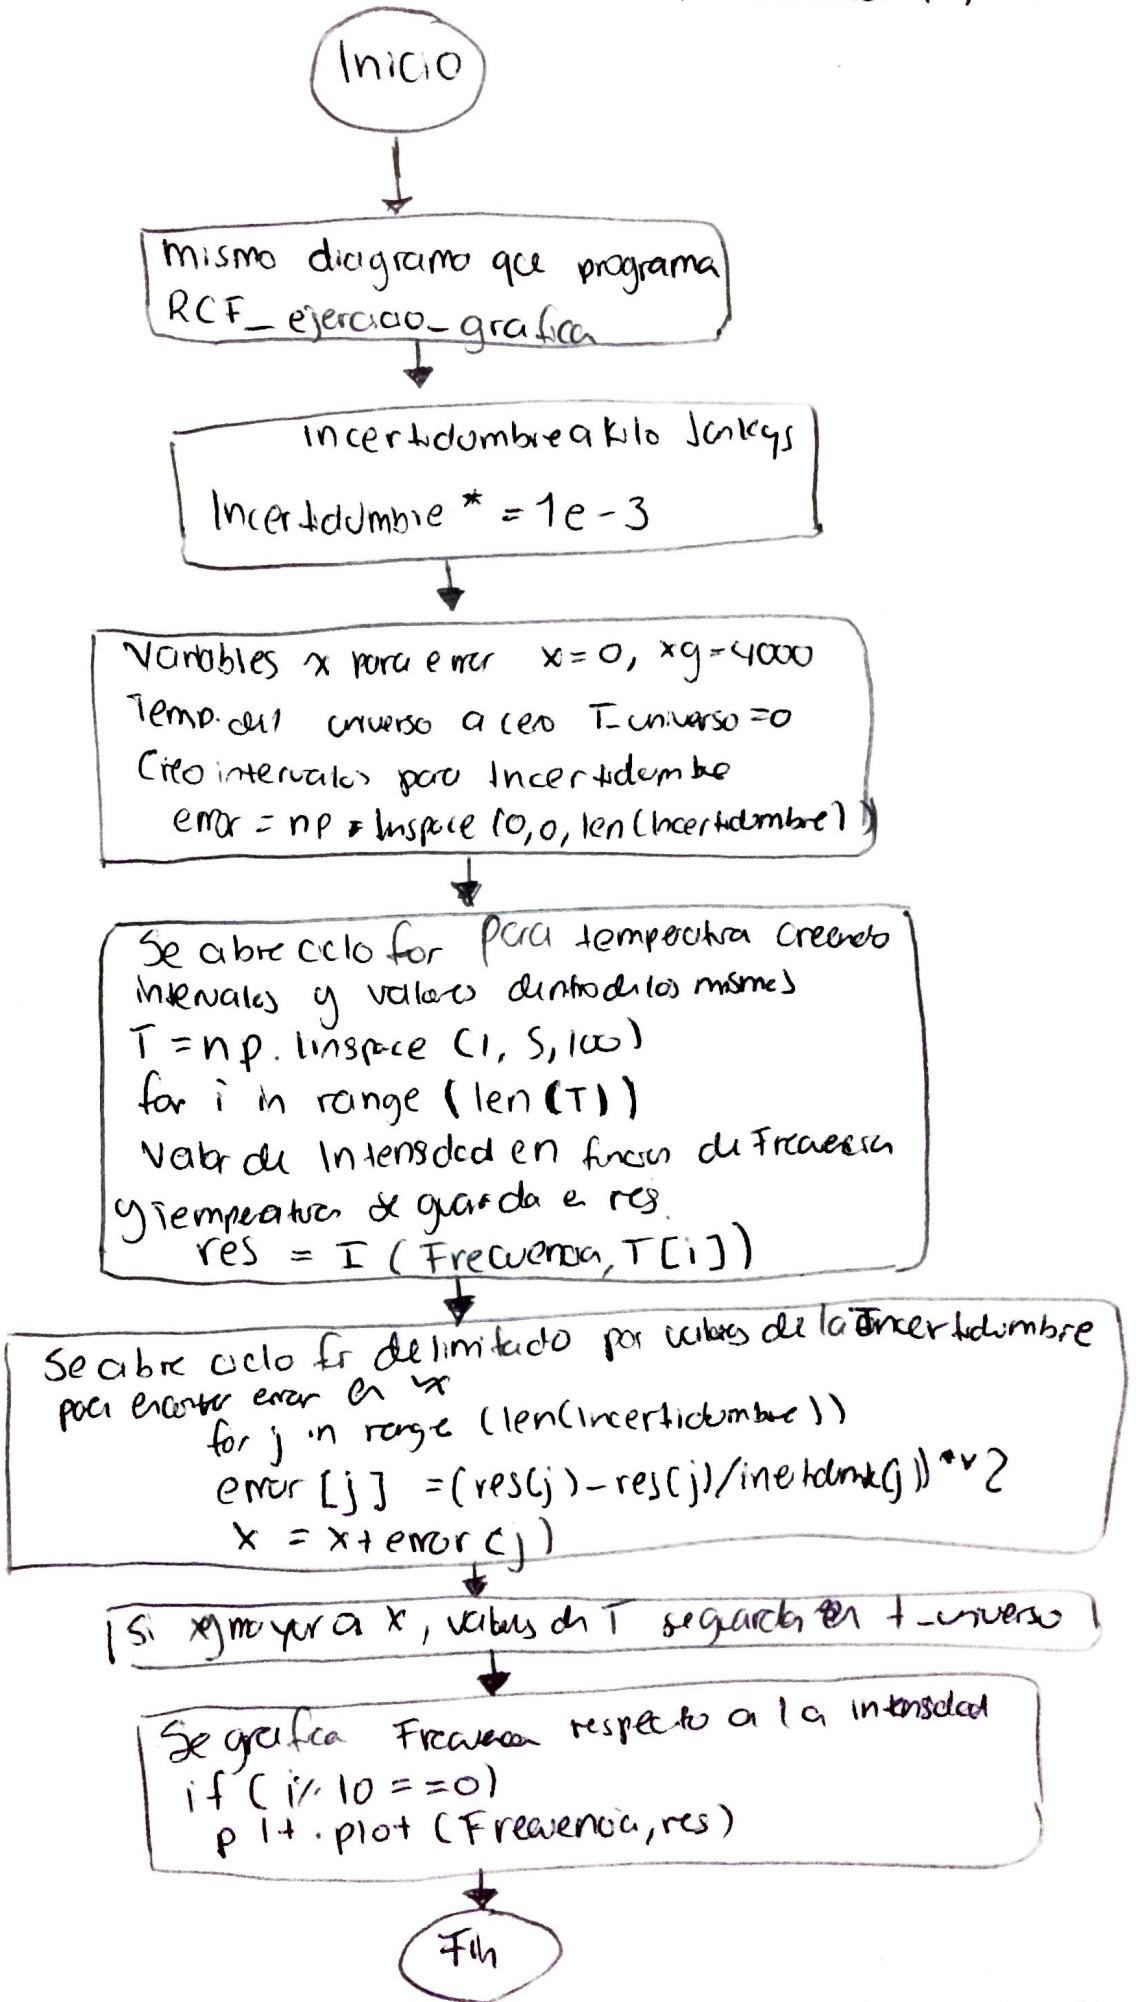 Inicio
mismo diagrama que programa
RCF_ejercicio_grafica
Incertidumbre a kilo Jankys
Incertidumbre * = 1e-3
Variables x para error x=0, xg=4000
Temp. del universo a cero T_universo=0
Creo intervalos para Incertidumbe
error = np. linspace (0,0, len(Incertidumbre))
Se abre ciclo for para temperatura creando
intervalos y valores dentro de los mismos
T = np. linspace (1, 5, 100)
for i in range (len(T))
Valor de Intensidad en funcion de Frecuencia
y Temperatura se guarda en res.
res = I (Frecuencia, T[i])
Se abre ciclo for delimitado por valores de la Incertidumbre
para encontrar error en x
for j in range (len(Incertidumbre))
error [j] = (res(j) - res(j)/incertidumbre(j))**2
x = x + error (j)
Si xg mayor a x, valores de T se guarda en t_universo
Se grafica Frecuencia respecto a la intensidad
if (i% 10 ==0)
plt.plot (Frecuencia, res)
Fin